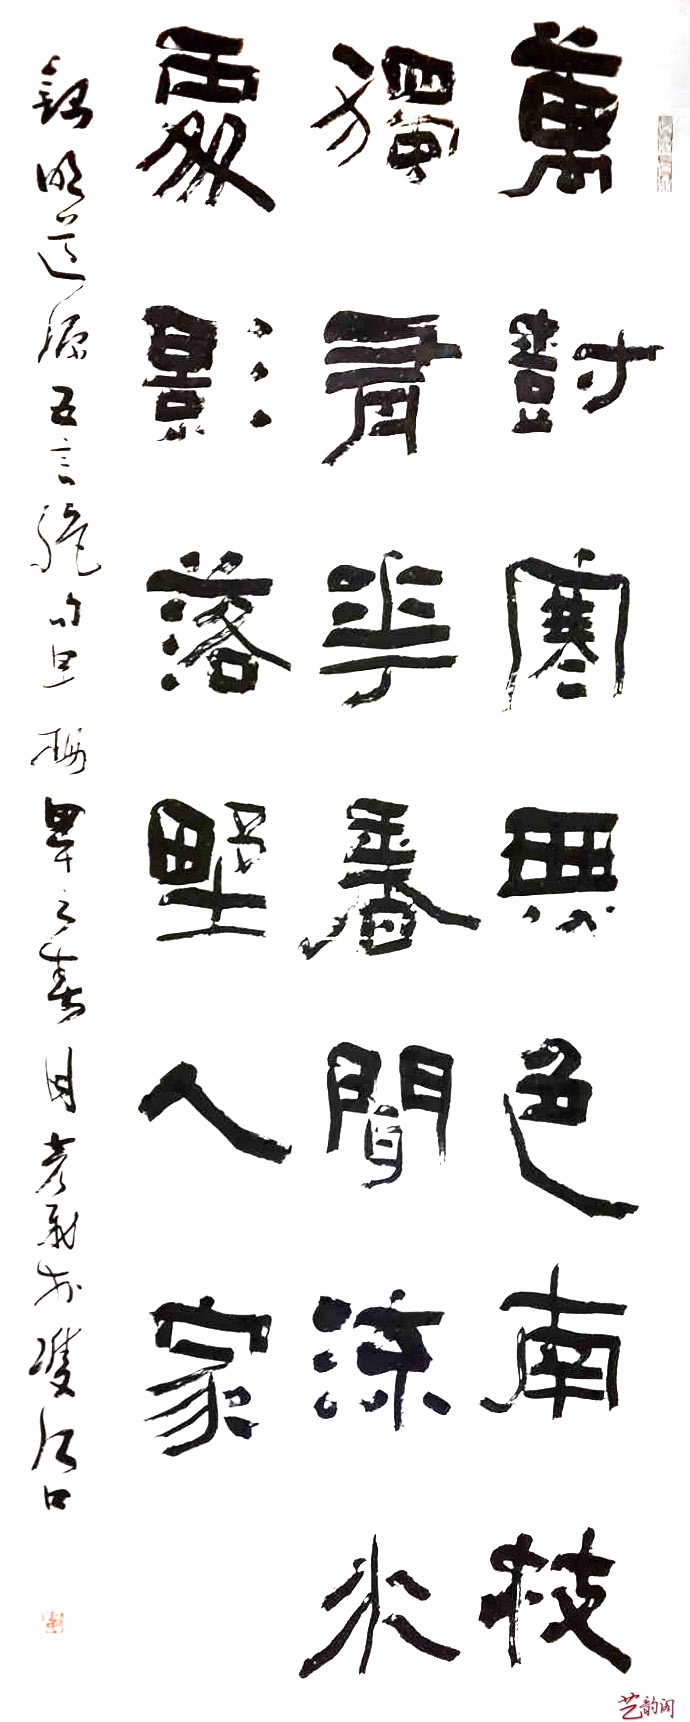 萬樹寒無色南枝
獨有花香聞流水
處影落野人家
錄明道源五言絕句早梅
畢之春月老兵於雙江口
艺韵阁